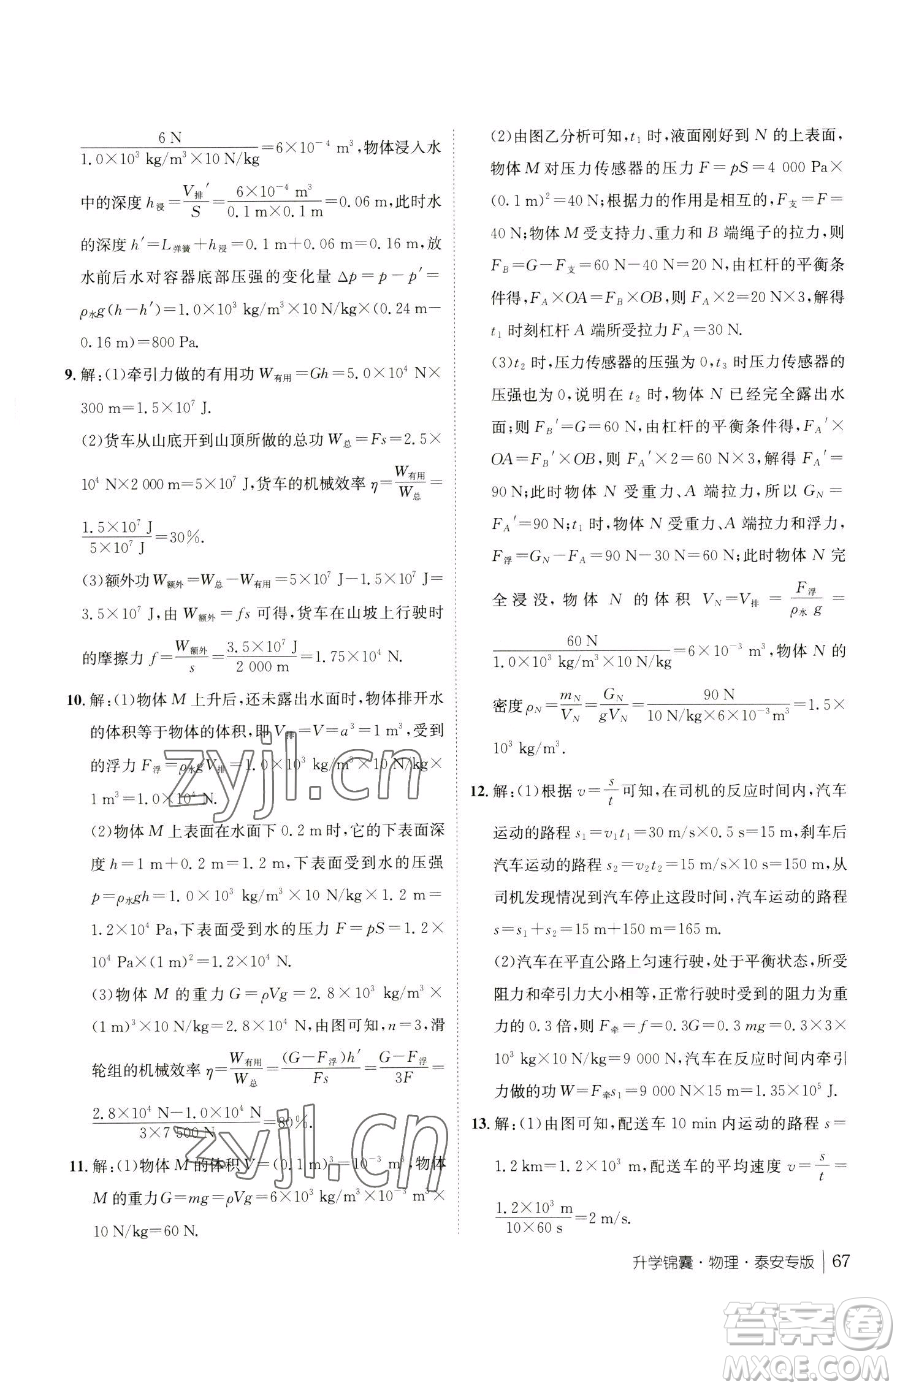 6 N/(1.0×10³ kg/m³×10 N/kg)=6×10⁻⁴ m³,物体浸入水
中的深度 h浸=V排′/S=6×10⁻⁴ m³/(0.1 m×0.1 m)=0.06 m,此时水
的深度 h′=L弹簧+h浸=0.1 m+0.06 m=0.16 m,放
水前后水对容器底部压强的变化量 Δp=p-p′=
ρ水g(h-h′)=1.0×10³ kg/m³×10 N/kg×(0.24 m-
0.16 m)=800 Pa.
9. 解:(1)牵引力做的有用功 W有用=Gh=5.0×10⁴ N×
300 m=1.5×10⁷ J.
(2)货车从山底开到山顶所做的总功 W总=Fs=2.5×
10⁴ N×2 000 m=5×10⁷ J,货车的机械效率 η=W有用/W总=
1.5×10⁷ J/5×10⁷ J=30%.
(3)额外功 W额外=W总-W有用=5×10⁷ J-1.5×10⁷ J=
3.5×10⁷ J,由 W额外=fs 可得,货车在山坡上行驶时
的摩擦力 f=W额外/s=3.5×10⁷ J/2 000 m=1.75×10⁴ N.
10. 解:(1)物体 M 上升后,还未露出水面时,物体排开水
的体积等于物体的体积,即 V排=V=a³=1 m³,受到
的浮力 F浮=ρ水gV排=1.0×10³ kg/m³×10 N/kg×
1 m³=1.0×10⁴ N.
(2)物体 M 上表面在水面下 0.2 m 时,它的下表面
深度 h=1 m+0.2 m=1.2 m,下表面受到水的压强
p=ρ水gh=1.0×10³ kg/m³×10 N/kg×1.2 m=
1.2×10⁴ Pa,下表面受到水的压力 F=pS=1.2×
10⁴ Pa×1 m²=1.2×10⁴ N.
(3)物体 M 的重力 G=ρVg=2.8×10³ kg/m³×
(1 m)³×10 N/kg=2.8×10⁴ N,由图可知,n=3,滑
轮组的机械效率 η=W有用/W总=(G-F浮)h′/Fs=(G-F浮)/3F=
(2.8×10⁴ N-1.0×10⁴ N)/(3×7 500 N)=80%.
11. 解:(1)物体 M 的体积 V=(0.1 m)³=10⁻³ m³,物体
M 的重力 G=mg=ρVg=6×10³ kg/m³×10⁻³ m³×
10 N/kg=60 N.
(2)由图乙分析可知,t₁ 时,液面刚好到 N 的上表面,
物体 M 对压力传感器的压力 F=pS=4 000 Pa×
(0.1 m)²=40 N;根据力的作用是相互的,F支=F=
40 N;物体 M 受支持力、重力和 B 端绳子的拉力,则
F_B=G-F支=60 N-40 N=20 N,由杠杆的平衡条
件得,F_A×OA=F_B×OB,则 F_A×2=20 N×3,解得
t₁ 时刻杠杆 A 端所受拉力 F_A=30 N.
(3)t₂ 时,压力传感器的压强为 0,t₃ 时压力传感器
的压强也为 0,说明在 t₂ 时,物体 N 已经完全露出水
面;则 F_B′=G=60 N,由杠杆的平衡条件得,F_A′×
OA=F_B′×OB,则 F_A′×2=60 N×3,解得 F_A′=
90 N;此时物体 N 受重力、A 端拉力,则 G_N=
F_A′=90 N;t₁ 时,物体 N 受重力、A 端拉力和浮力,
F浮=G_N-F_A=90 N-30 N=60 N;此时物体 N 完
全浸没,物体 N 的体积 V_N=V排=F浮/ρ水g=
60 N/(1.0×10³ kg/m³×10 N/kg)=6×10⁻³ m³,物体 N 的
密度 ρ_N=m_N/V_N=G_N/gV_N=90 N/(10 N/kg×6×10⁻³ m³)=1.5×
10³ kg/m³.
12. 解:(1)根据 v=s/t 可知,在司机的反应时间内,汽车
运动的路程 s₁=v₁t₁=30 m/s×0.5 s=15 m,刹车后
汽车运动的路程 s₂=v₂t₂=15 m/s×10 s=150 m,从
司机发现情况到汽车停止这段时间,汽车运动的路程
s=s₁+s₂=15 m+150 m=165 m.
(2)汽车在平直公路上匀速行驶,处于平衡状态,所受
阻力和牵引力大小相等,正常行驶时受到的阻力为车
重的 0.3 倍,则 F牵=f=0.3G=0.3 mg=0.3×3×
10³ kg×10 N/kg=9 000 N,汽车在两地间牵引
力做的功 W=F牵s=9 000 N×9×10⁴ m=8.1×10⁸ J.
13. 解:(1)由图可知,配送车 10 min 内运动的路程 s=
1.2 km=1.2×10³ m,配送车的平均速度 v=s/t=
1.2×10³ m/10×60 s=2 m/s.
升学锦囊·物理·泰安专版 67
zyjl.cn
zyjl.cn
答案圈
MXQE.COM